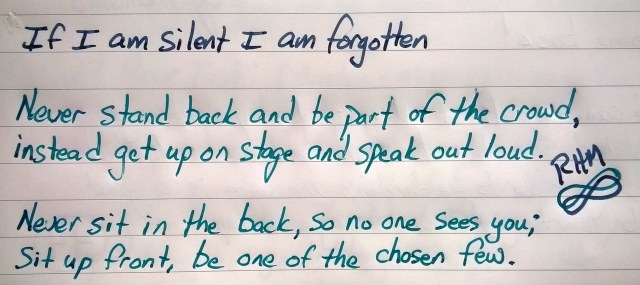 If I am silent I am forgotten
Never stand back and be part of the crowd,
instead get up on stage and speak out loud.
RHM
Never sit in the back, so no one sees you;
Sit up front, be one of the chosen few.